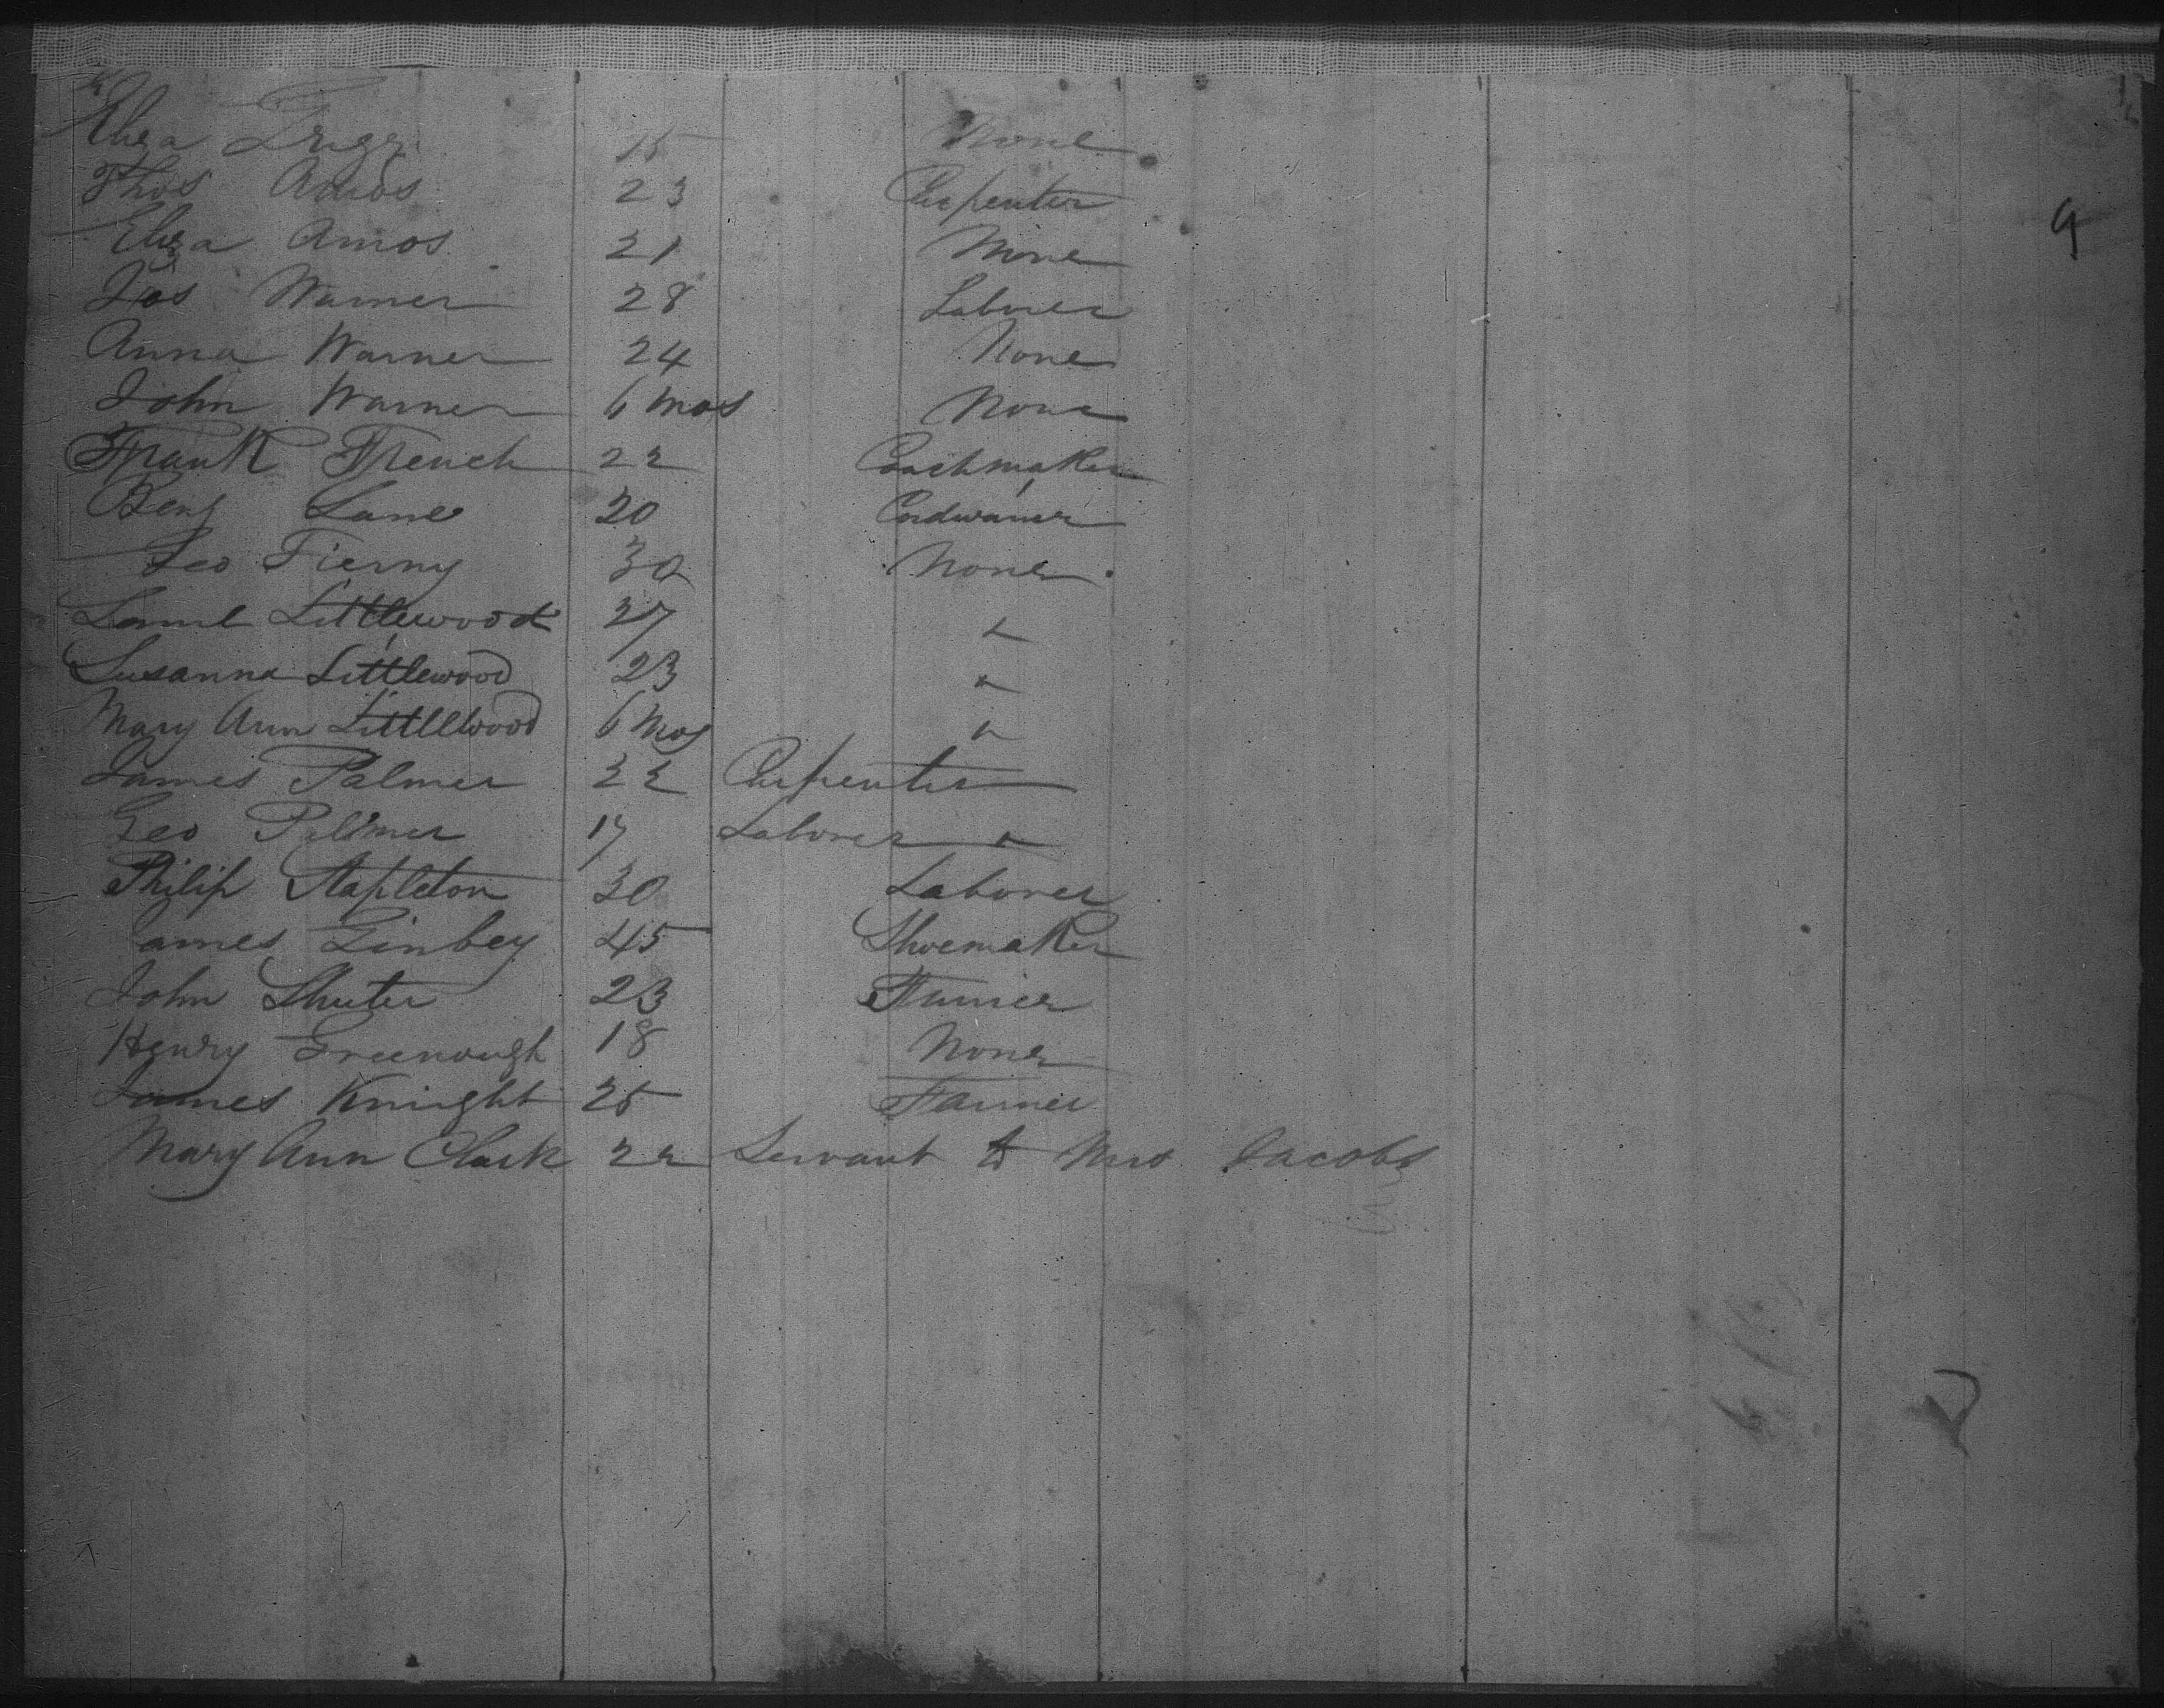 Eliza Trigg 15 None
Thos Amos 23 Carpenter
9
Eliza Amos 21 None
Jos Warner 28 Laborer
Anna Warner 24 None
John Warner 6 Mos None
Frank French 22 Coachmaker
Benj Lane 20 Cordwainer
Geo Tierny 30 None
Saml Littlewood 27 "
Susanna Littlewood 23 "
Mary Ann Littlewood 6 Mos "
James Palmer 22 Carpenter
Geo Palmer 17 Laborer "
Philip Stapleton 30 Laborer
James Ginbey 45 Shoemaker
John Shuter 23 Farmer
Henry Greenough 18 None
James Knight 25 Farmer
Mary Ann Clark 22 Servant to Mrs Jacobs